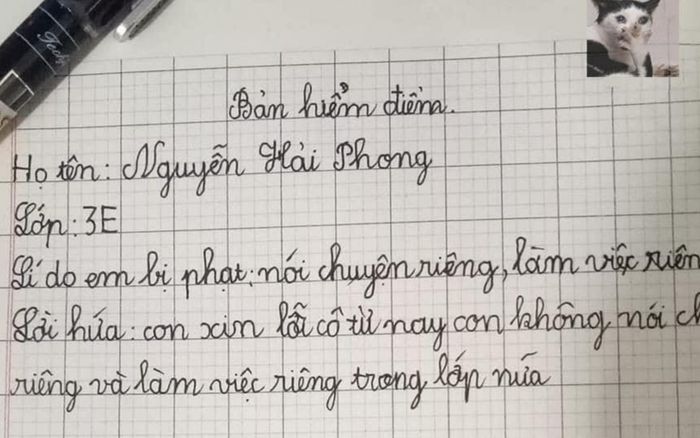 Bản hiểm điểm.
Họ tên: Nguyễn Hải Phong
Lớp: 3E
Lí do em bị phạt: nói chuyện riêng, làm việc riên
Lời hứa: con xin lỗi cô từ nay con không nói ch
riêng và làm việc riêng trong lớp nữa